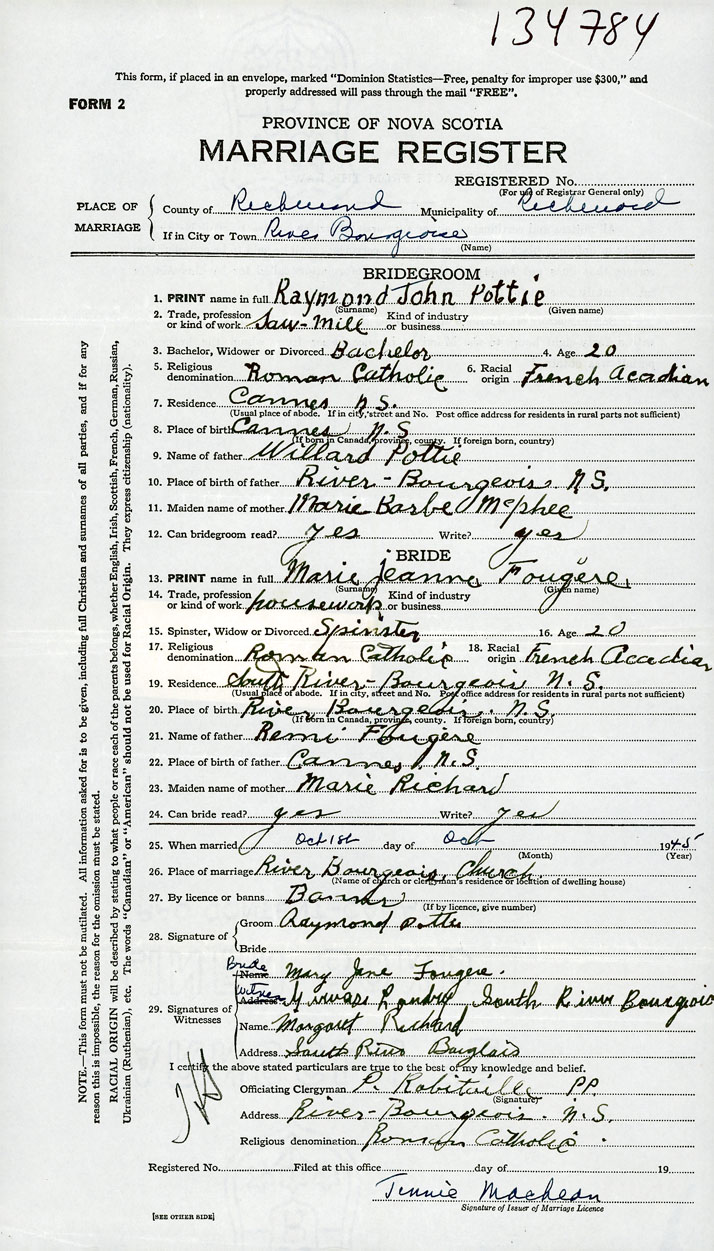 134784
This form, if placed in an envelope, marked "Dominion Statistics—Free, penalty for improper use $300," and
properly addressed will pass through the mail "FREE".
FORM 2
PROVINCE OF NOVA SCOTIA
MARRIAGE REGISTER
REGISTERED No.
(For use of Registrar General only)
PLACE OF MARRIAGE
County of Richmond Municipality of Richmond
If in City or Town River Bourgeoise
(Name)
BRIDEGROOM
1. PRINT name in full Raymond John Pottie
(Surname) (Given name)
2. Trade, profession or kind of work Saw-Mill Kind of industry or business
3. Bachelor, Widower or Divorced Bachelor 4. Age 20
5. Religious denomination Roman Catholic 6. Racial origin French Acadian
7. Residence Cannes N.S.
(Usual place of abode. If in city, street and No. Post office address for residents in rural parts not sufficient)
8. Place of birth Cannes N.S
(If born in Canada, province, county. If foreign born, country)
9. Name of father Willard Pottie
10. Place of birth of father River-Bourgeois. N.S.
11. Maiden name of mother Marie Barbe McPhee
12. Can bridegroom read? yes Write? yes
BRIDE
13. PRINT name in full Marie Jeanne Fougère
(Surname) (Given name)
14. Trade, profession or kind of work housework Kind of industry or business
15. Spinster, Widow or Divorced Spinster 16. Age 20
17. Religious denomination Roman Catholic 18. Racial origin French Acadian
19. Residence South River-Bourgeois N.S.
(Usual place of abode. If in city, street and No. Post office address for residents in rural parts not sufficient)
20. Place of birth River Bourgeois. N.S.
(If born in Canada, province, county. If foreign born, country)
21. Name of father Remi Fougère
22. Place of birth of father Cannes, N.S.
23. Maiden name of mother Marie Richard
24. Can bride read? yes Write? yes
25. When married Oct 1st day of Oct 1945
(Month) (Year)
26. Place of marriage River Bourgeois, Church.
(Name of church or clergyman's residence or location of dwelling house)
27. By licence or banns Banns
(If by licence, give number)
28. Signature of
Groom Raymond Pottie
Bride
Bride Name Mary Jane Fougere.
Witness Address Landry South River Bourgeois
29. Signatures of Witnesses
Name Margaret Richard
Address South River
I certify the above stated particulars are true to the best of my knowledge and belief.
Officiating Clergyman P. Robitaille PP.
(Signature)
Address River-Bourgeois. N.S.
Religious denomination Roman Catholic.
Registered No. Filed at this office day of 19
Tennie MacLean
Signature of Issuer of Marriage Licence
[SEE OTHER SIDE]
NOTE.—This form must not be mutilated. All information asked for is to be given, including full Christian and surnames of all parties, and if for any
reason this is impossible, the reason for the omission must be stated.
RACIAL ORIGIN will be described by stating to what people or race each of the parents belongs, whether English, Irish, Scottish, French, German, Russian,
Ukrainian (Ruthenian), etc. The words "Canadian" or "American" should not be used for Racial Origin. They express citizenship (nationality).